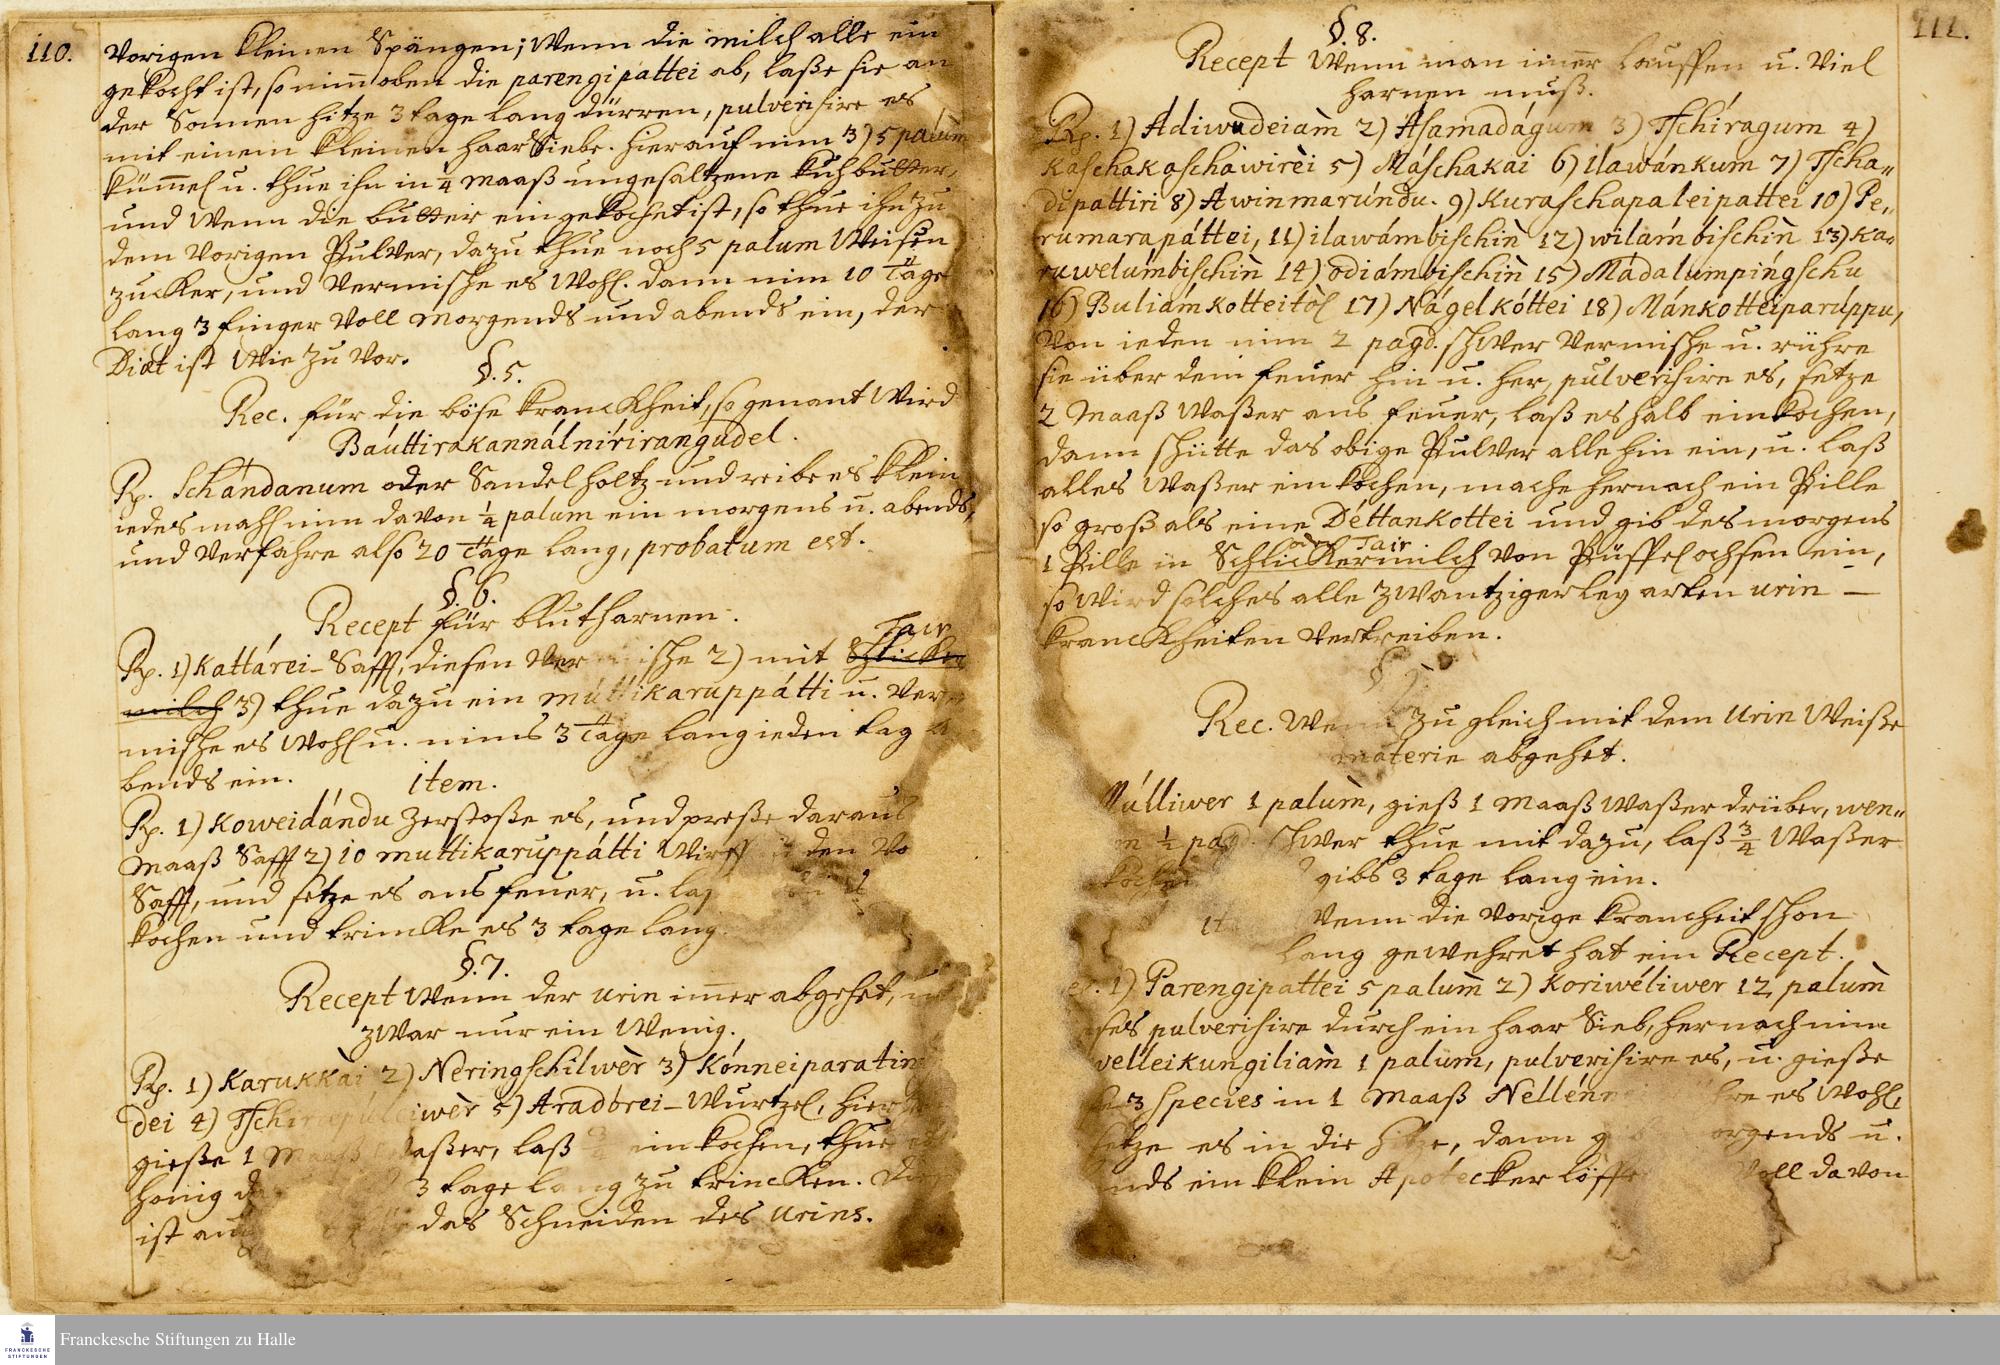 110.
Vorigen kleinen Spängen; Wenn die milch alle ein
gekocht ist, so nim̄ oben die parengipáttei ab, laße sie an
der Sonnen hitze 3 tage lang dürren, pulverisire es
mit einem kleinen haarSiebe. hierauf nim 3) 5 palùm
kümmel u. thue ihn in 4 Maaß ungesaltzene kuhbutter,
und Wenn die butter eingekochet ist, so thue ihn zu
dem Vorigen Pulver, dazu thue noch 5 palum Weisen
zucker, und Vermische es Wohl. dann nim 10 Täge
lang 3 finger Voll Morgends und abends ein, der
Diæt ist Wie zu Vor.
§. 5.
Rec. für die böse kranckheit, so genant Wird
Baúttirakannálnírirangúdel.
Rp. Schándanum oder Sandelholtz und reibe es klein
iedes mahl nim davon ¼ palum ein morgens u. abends,
und Verfahre also 20 Täge lang, probatum est.
§. 6.
Recept für blutharnen.
Tair
Rp. 1) Kattárei-Safft, diesen Vermische 2) mit Schlicker
milch 3) thue dazu ein múttikaruppátti u. Ver
mische es Wohl u. nims 3 Täge lang ieden tag a
bends ein. item.
Rp. 1) Koweidándu Zerstoße es, und preße daraus
Maaß Safft 2) 10 muttikaruppátti Wirff den Vo
Safft, und setze es ans feuer, u. laß
kochen und trincke es 3 tage lang.
§. 7.
Recept Wenn der urin im̄er abgehet, u
zWar nur ein Wenig.
Rp. 1) Karukkài 2) Neringschilwèr 3) Kónneiparatin
dei 4) 5) Aradórei-Wurtzel, hier
gieße 1 Maaß Waßer, laß ¾ einkochen, thue
honig da 3 tage lang zu trincken.
ist auch das Schneiden des urins.
111.
§. 8.
Recept Wenn man im̄er lauffen u. Viel
harnen muß.
Rp. 1) Adiwudeiam̀ 2) Asamadágum 3) Tschíragum 4)
Kaschakaschàwirèi 5) Máschakai 6) ilawánkum 7) Tscha„
dipattiri 8) Awinmarúndu. 9) Kuraschapaleipattei 10) Pe„
rumarapáttei, 11) ilawámbischiǹ 12) wilám̀bischiǹ 13) Ka„
ruwelúmbischiǹ 14) odiámbischiǹ 15) Mádalumpíngschu
16) Buliámkotteitòl 17) Nágelkóttei 18) Mánkotteiparúppu,
Von ieden nim 2 pagd. schWer Vermische u. rühre
sie über dem feuer hin u. her, pulverisire es, setze
2 Maaß Waßer ans feuer, laß es halb einkochen,
dann schütte das obige Pulver alle hin ein, u. laß
alles Waßer einkochen, mache hernach ein Pille
so groß als eine Déttankottei und gib des morgens
oder Tair
1 Pille in Schlickermilch Von Püffelochsen ein,
so Wird solches alle zWantzigerley arten urin —
kranckheiten Vertreiben.
§
Rec. Wenn zu gleich mit dem Urin Weiße
materie abgehet.
Múlliwer 1 palum̀, gieß 1 Maaß Waßer drüber, wen„
½ pagd. schWer thue mit dazu, laß ¾ Waßer
kochen gibs 3 tage lang ein.
Wenn die Vorige krancheit schon
lang gewehret hat ein Recept.
1) Parengipattei 5 palum̀ 2) Koriwéliwer 12 palum̀
pulverisire durch ein haar Sieb, hernach nim
velleikungiliam̀ 1 palum, pulverisire es, u. gieße
3 Species in 1 Maaß es Wohl,
setze es in die hitze, dann morgends u.
ein klein Apotecker löffel Voll davon
Franckesche Stiftungen zu Halle
FRANCKESCHE
STIFTUNGEN